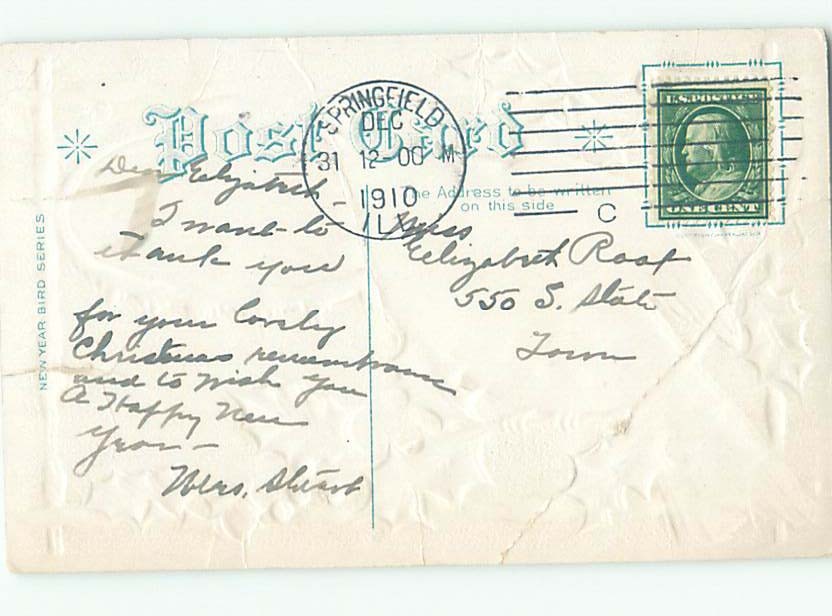 Post Card
SPRINGFIELD
DEC
31 12-00 M
1910
ILL.
C
U.S. POSTAGE
ONE CENT
The Address to be written
on this side
NEW YEAR BIRD SERIES
Dear Elizabeth -
I want to
thank you
for your lovely
Christmas remembrance
and to wish you
A Happy New
Year -
Mrs. Stuart
Miss
Elizabeth Roast
550 S. State
Town